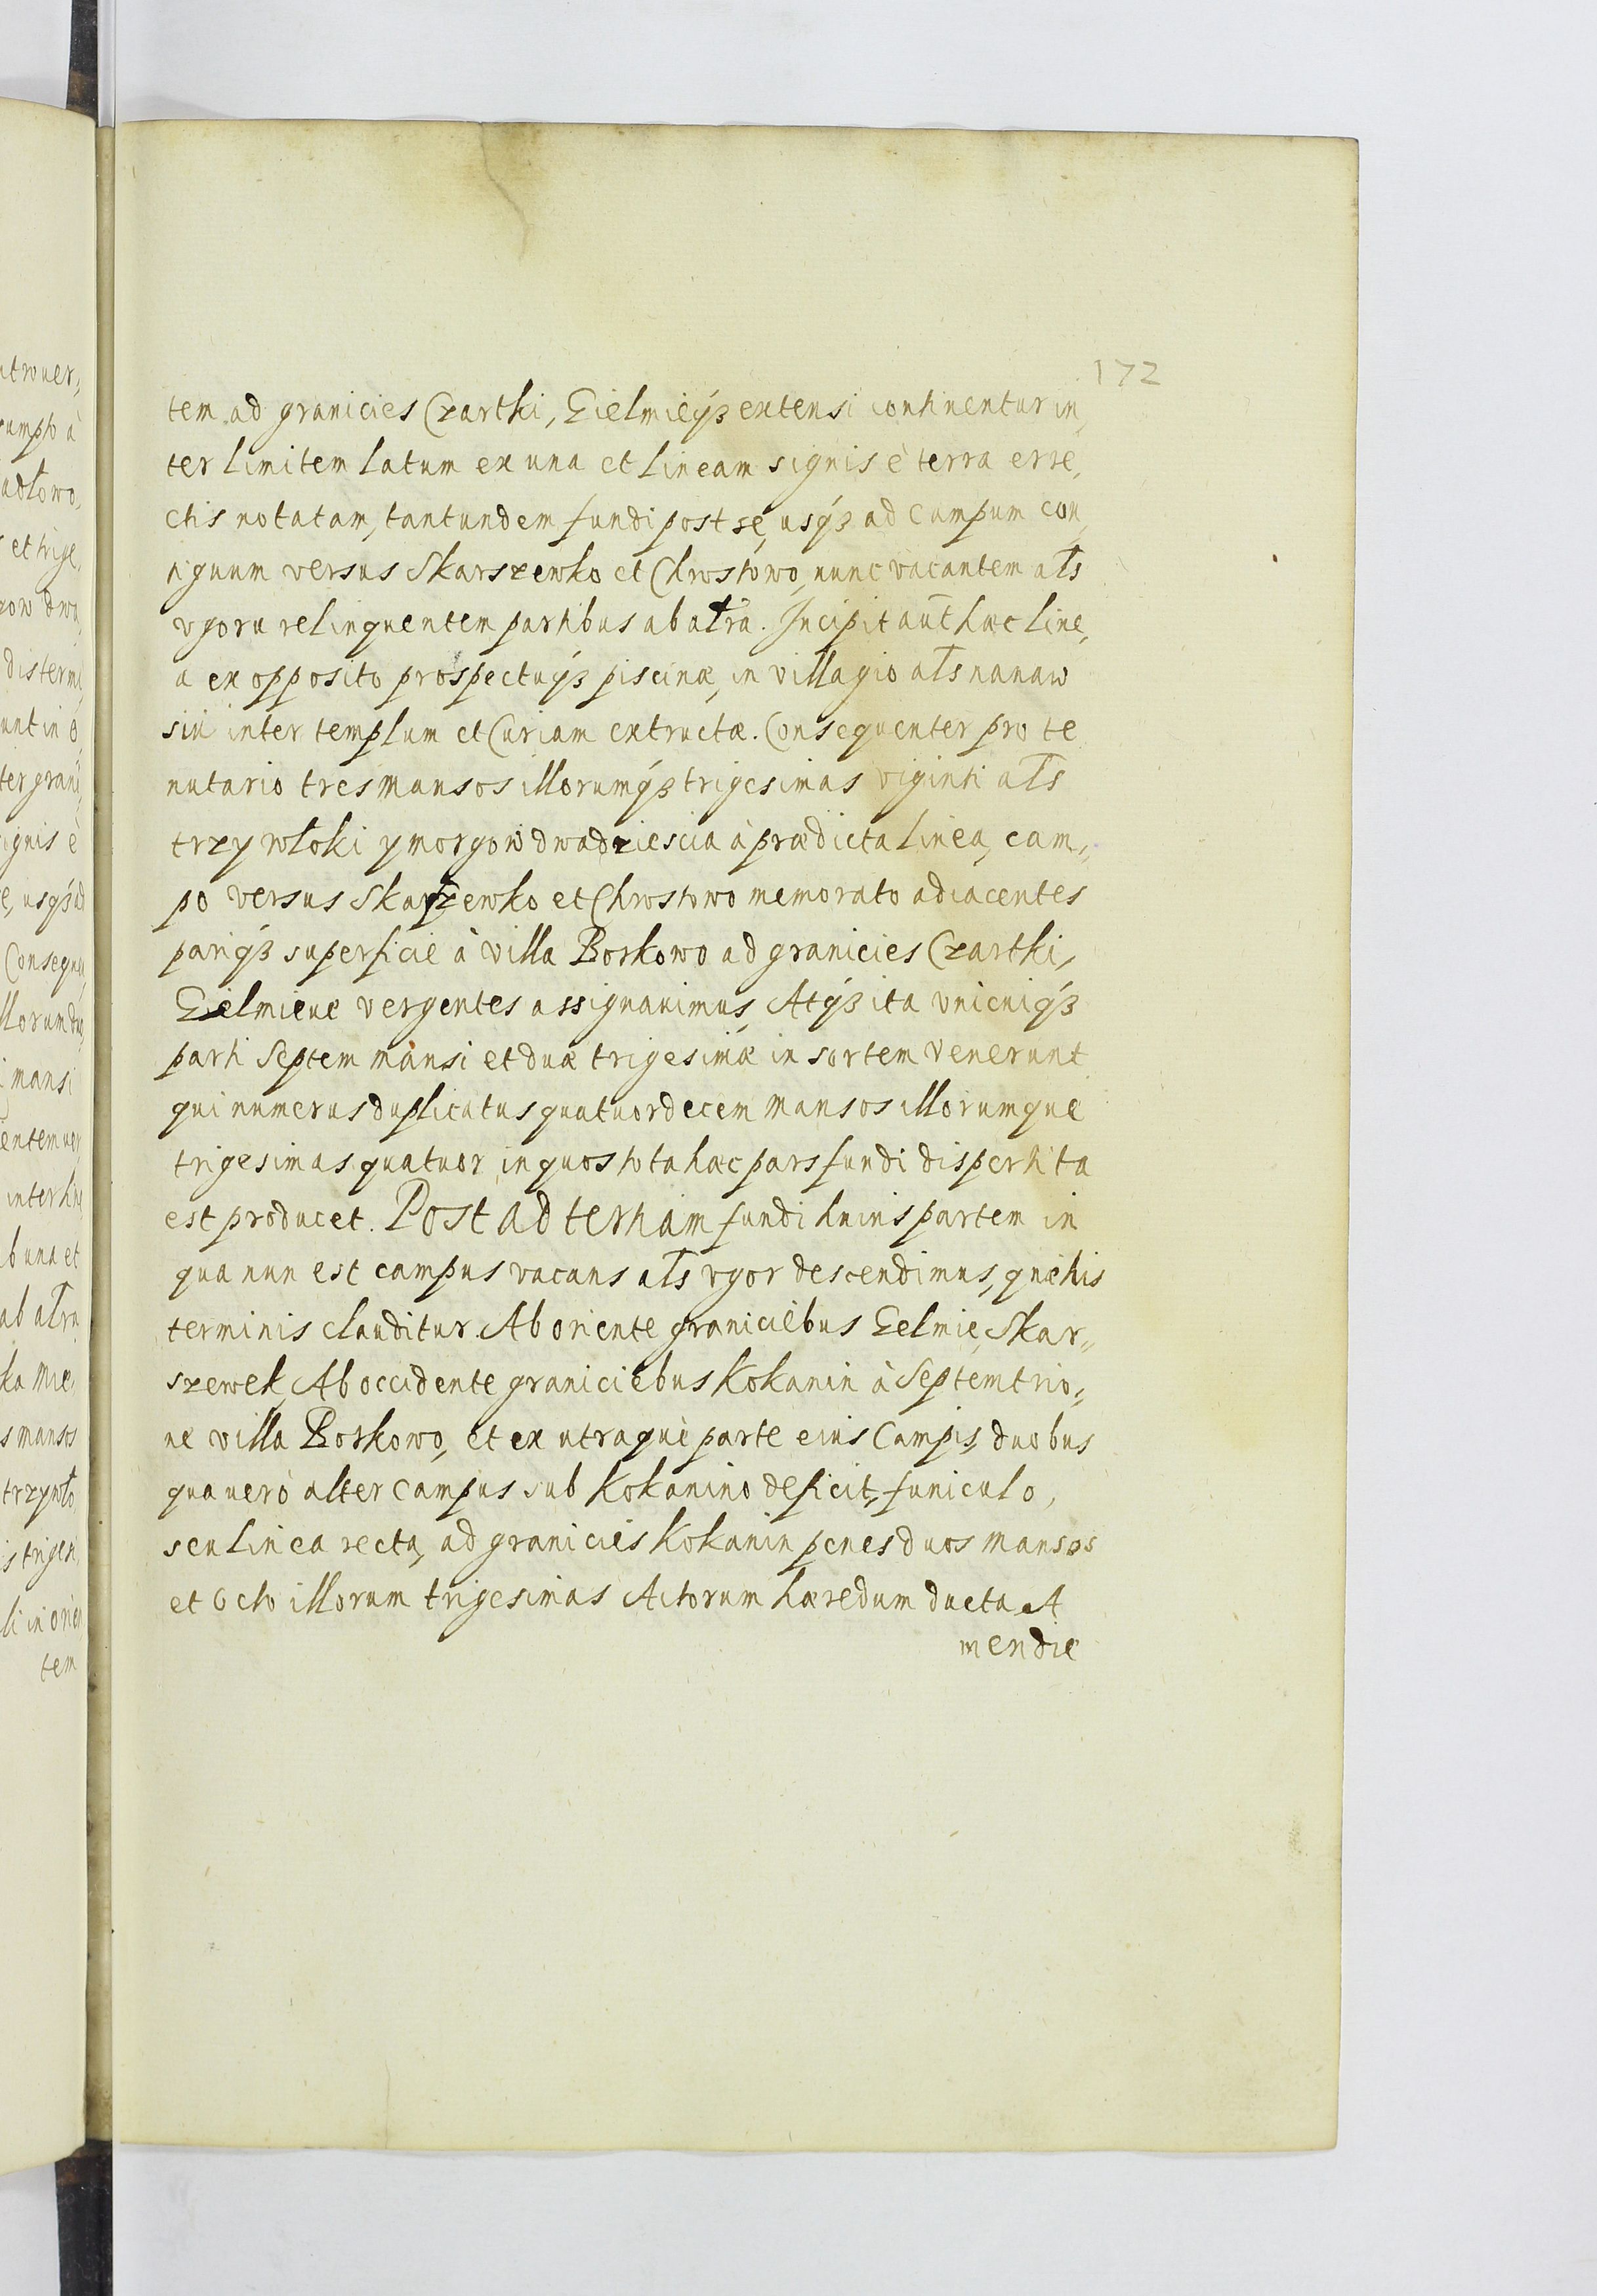 172
tem ad granicies Czartki, Gielmieqꝫ extensi continentur in,
ter limitem latum ex una et lineam signis è terra erre,
ctis notatam, tantundem fundi post se, usqꝫ ad campum con,
tiguum versus Skarszewko et Chrostowo, nunc vacantem als
vgoru relinquentem partibus ab altra. Incipit aut̄ hæc line,
a ex opposito prospectuqꝫ piscinæ, in villagio als na naw
siu inter templum et Curiam extructæ. Consequenter pro te
nutario tres mansos illorumqꝫ trigesimas viginti als
trzy włoki y morgow dwadziescia à prædicta linea, cam„
po versus Skarszewko et Chrostowo memorato adiacentes
pariqꝫ superficie à villa Borkowo ad granicies Czartki,
Gielmieue vergentes assignauimus, Atqꝫ ita vnicuiqꝫ
parti Septem mansi et duæ trigesimæ in sortem venerunt
qui numerus duplicatus quatuordecem mansos illorumque
trigesimas quatuor, in quos tota hæc pars fundi dispertita
est producet. Post ad tertiam fundi huius partem in
qua nun est campus vacans als vgor descendimus, quæ his
terminis clauditur. Ab oriente graniciebus Gelmie, Skar„
szewek, Ab occidente graniciebus Kokanin à Septemtrio„
ne villa Borkowo, et ex utraque parte eius Campis, duobus
qua uerò alter campus sub Kokanino deficit, funiculo,
seu linea recta, ad granicies Kokanin penes duos mansos
et Octo illorum trigesimas Actorum hæredum ducta. A
meridie